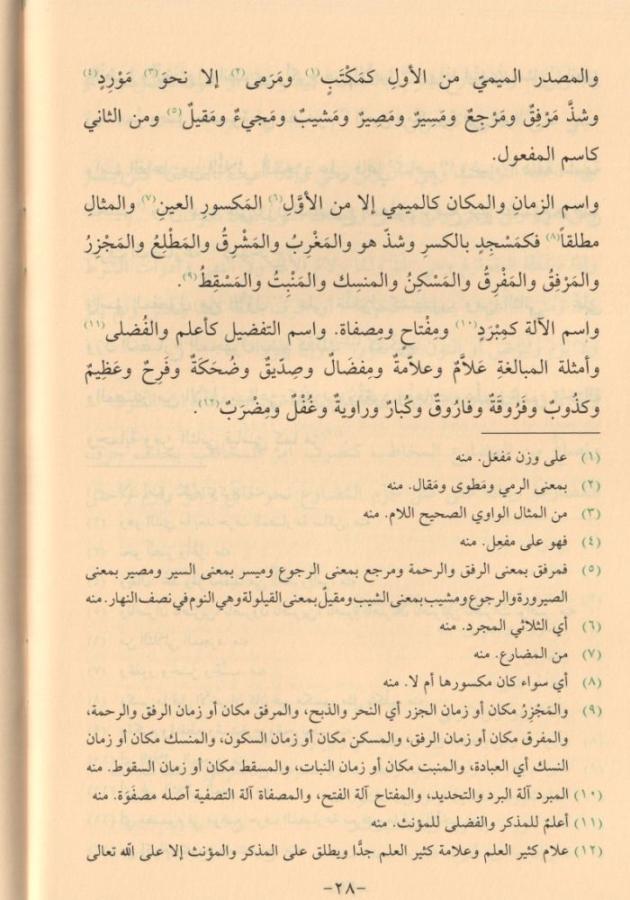 والمصدر الميميّ من الأولِ كمَكْتَبٍ(١) ومَرَمى(٢) إلا نحوَ(٣) مَوْرِدٍ(٤)
وشذَّ مَرْفِقٌ ومَرْجِعٌ ومَسِيرٌ ومَصِيرٌ ومَشيبٌ ومَجيءٌ ومَقيلٌ(٥) ومن الثاني
كاسم المفعول.
واسم الزمانِ والمكان كالميمي إلا من الأوَّلِ(٦) المَكسورِ العينِ(٧) والمثالِ
مطلقاً(٨) فكمَسْجِدٍ بالكسرِ وشذّ هو والمَغْرِبُ والمَشْرِقُ والمَطْلِعُ والمَجْزِرُ
والمَرْفِقُ والمَفْرِقُ والمَسْكِنُ والمنسِك والمَنْبِتُ والمَسْقِطُ(٩).
واسم الآلة كمِبْرَدٍ(١٠) ومِفْتاحٍ ومِصفاة. واسم التفضيل كأعلم والفُضلى(١١)
وأمثلة المبالغةِ عَلاَّمٌ وعلاّمةٌ ومِفضَالٌ وصِدّيقٌ وضُحَكَةٌ وفَرِحٌ وعَظِيمٌ
وكَذُوبٌ وفَرُوقَةٌ وفاروقٌ وكُبارٌ وراويةٌ وغُفْلٌ ومِضْرَبٌ(١٢).
(١) على وزن مَفعَل. منه
(٢) بمعنى الرمي ومَطوى ومَقال. منه
(٣) من المثال الواوي الصحيح اللام. منه
(٤) فهو على مفعِل. منه
(٥) فمرفق بمعنى الرفق والرحمة ومرجع بمعنى الرجوع وميسر بمعنى السير ومصير بمعنى
الصيرورة والرجوع ومشيب بمعنى الشيب ومقيلٌ بمعنى القيلولة وهي النوم في نصف النهار. منه
(٦) أي الثلاثي المجرد. منه
(٧) من المضارع. منه
(٨) أي سواء كان مكسورها أم لا. منه
(٩) والمَجْزِرُ مكان أو زمان الجزر أي النحر والذبح، والمرفق مكان أو زمان الرفق والرحمة،
والمفرق مكان أو زمان الرفق، والمسكن مكان أو زمان السكون، والمنسك مكان أو زمان
النسك أي العبادة، والمنبت مكان أو زمان النبات، والمسقط مكان أو زمان السقوط. منه
(١٠) المبرد آلة البرد والتحديد، والمفتاح آلة الفتح، والمصفاة آلة التصفية أصله مصفَوَة. منه
(١١) أعلمُ للمذكر والفضلى للمؤنث. منه
(١٢) علام كثير العلم وعلامة كثير العلم جدًّا ويطلق على المذكر والمؤنث إلا على الله تعالى
-٢٨-